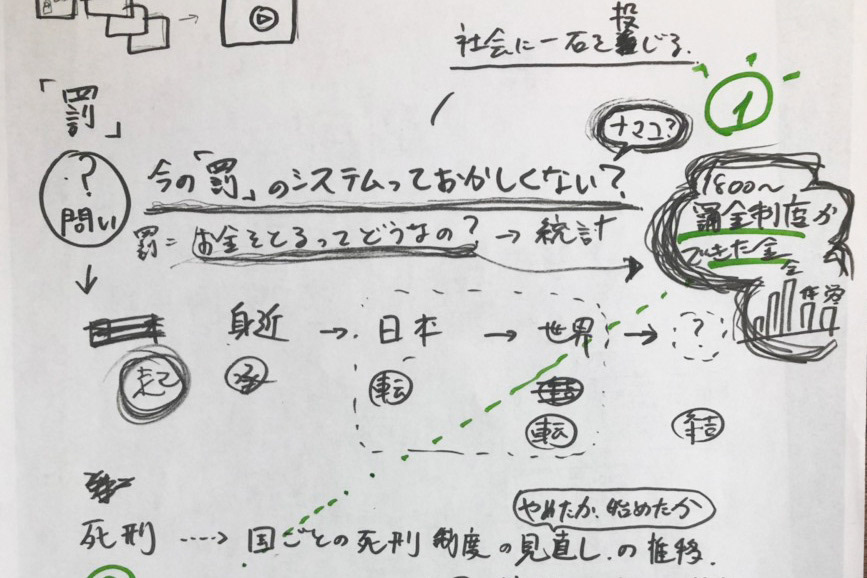 社会に一石を投じる。
「罰」
①
ナマコ?
? 問い
今の「罰」のシステムっておかしくない?
罰=お金をとるってどうなの? → 統計
1800〜
罰金制度が
できた金
身近 → 日本 → 世界 → ?
起 承 転 転 結
死刑 ----> 国ごとの死刑制度の見直しの推移。
やめたか、始めたか